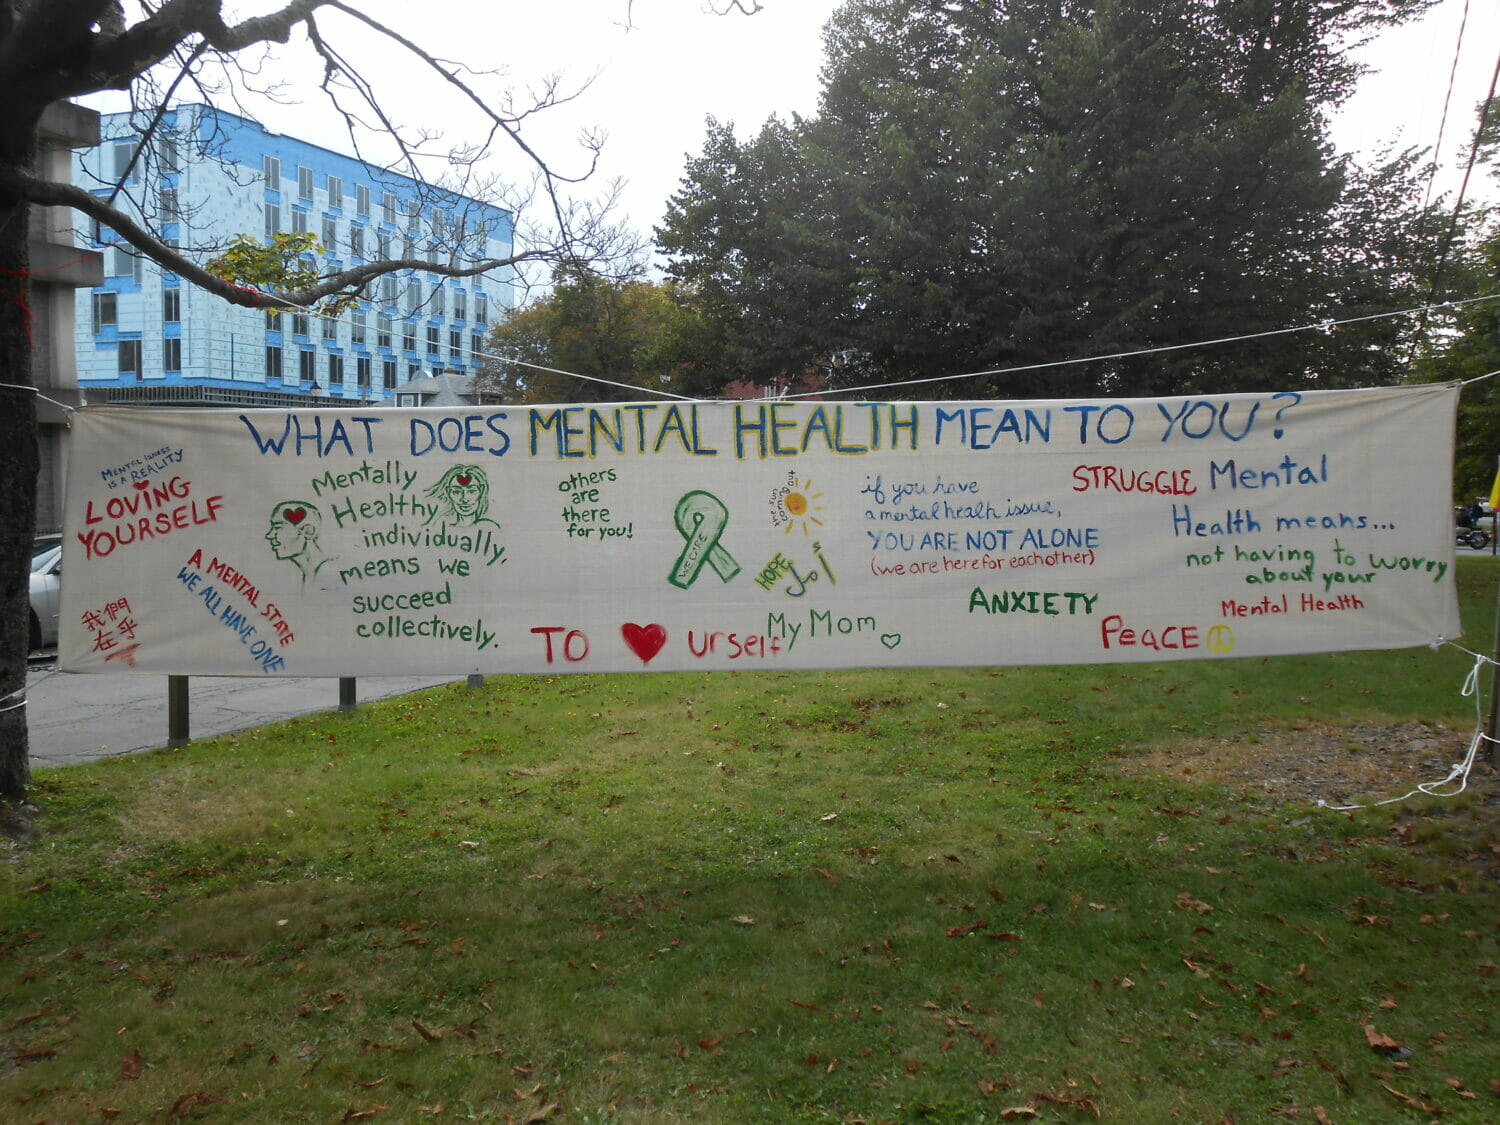 WHAT DOES MENTAL HEALTH MEAN TO YOU?
MENTAL ILLNESS
IS A REALITY
LOVING
YOURSELF
A MENTAL STATE
WE ALL HAVE ONE
我們
在乎
Mentally
Healthy
individually,
means we
succeed
collectively.
others
are
there
for you!
TO urself
WE CARE
the sun
coming out
HOPE
Joi
My Mom
if you have
a mental health issue,
YOU ARE NOT ALONE
(we are here for each other)
ANXIETY
STRUGGLE
Mental
Health means...
not having to worry
about your
Mental Health
PEACE